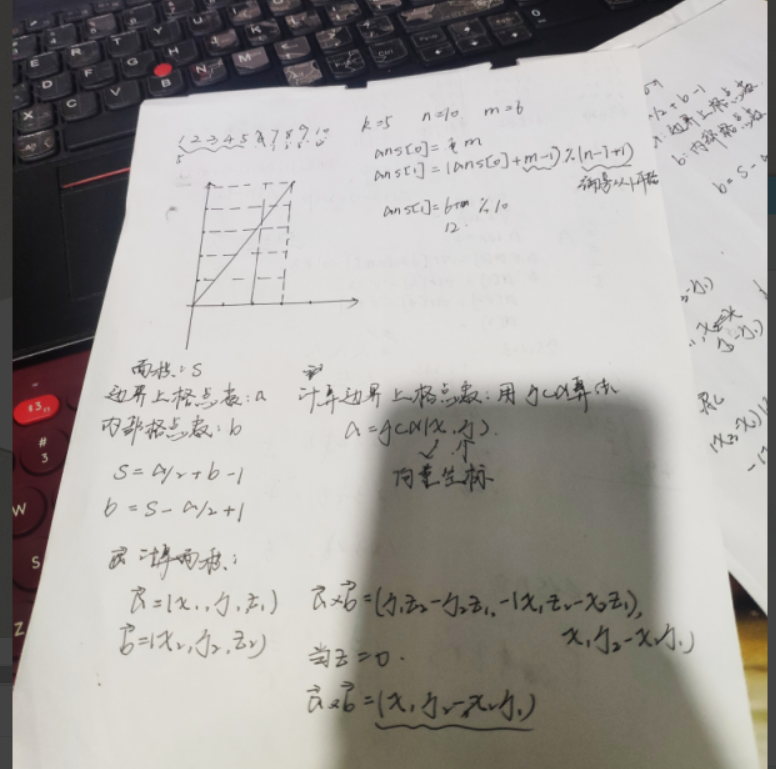 k=5 n=10 m=6
1 2 3 4 5 6 7 8 9 10
ans[0]= m
ans[1]=(ans[0]+m-1)%(n-1+1)
编号从1开始
ans[1]=6+m%10
12
面积:S
边界上格点数:a
内部格点数:b
S=a/2+b-1
b=S-a/2+1
计算边界上格点数:用gcd算法
a=gcd(x,y).
向量坐标
计算面积:
a⃗=(x₁,y₁,z₁)
b⃗=(x₂,y₂,z₂)
a⃗×b⃗=(y₁z₂-y₂z₁,-(x₁z₂-x₂z₁),
x₁y₂-x₂y₁)
当z=0.
a⃗×b⃗=(x₁y₂-x₂y₁)
/2+b-1
:边界上格点数
b:内部格点数
b=S-